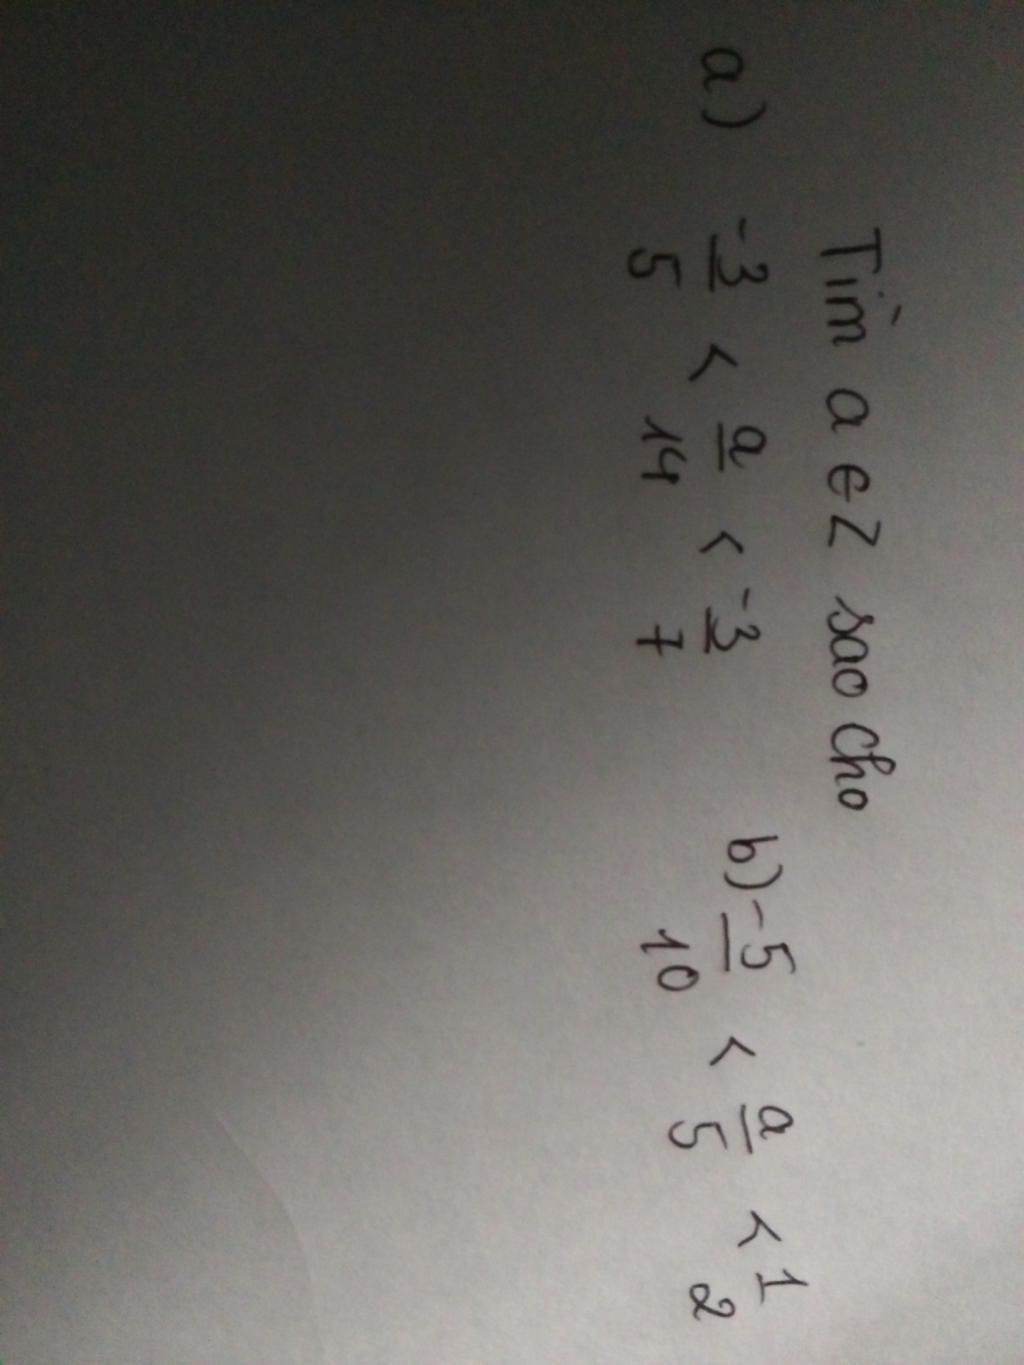 Tìm a ∈ Z sao cho
a) -3/5 < a/14 < -3/7
b) -5/10 < a/5 < 1/2